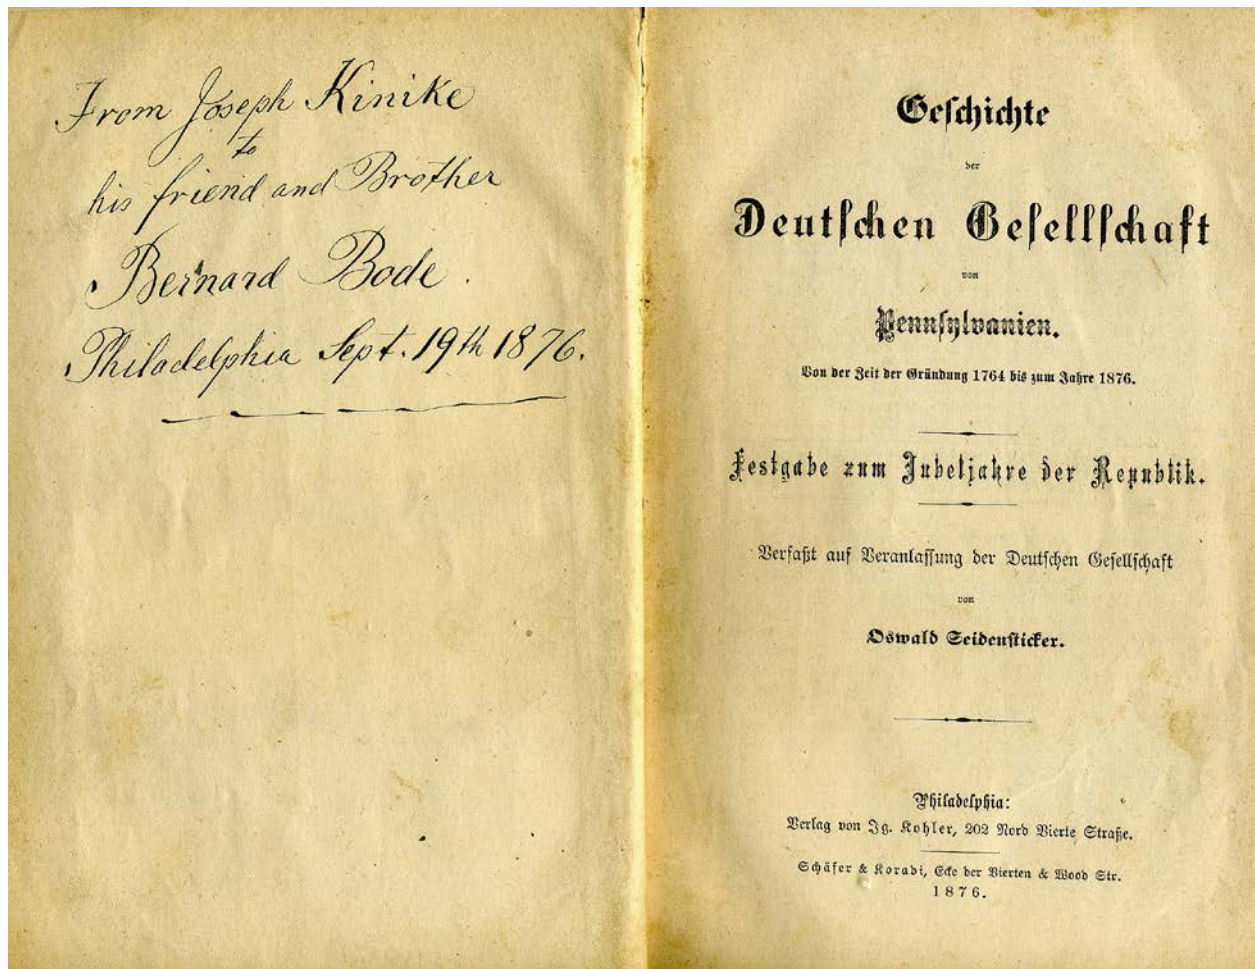 From Joseph Kinike
to
his friend and Brother
Bernard Bode.
Philadelphia Sept. 19th 1876.
Geschichte
der
Deutschen Gesellschaft
von
Pennsylvanien.
Von der Zeit der Gründung 1764 bis zum Jahre 1876.
Festgabe zum Jubeljahre der Republik.
Verfaßt auf Veranlassung der Deutschen Gesellschaft
von
Oswald Seidensticker.
Philadelphia:
Verlag von Ig. Kohler, 202 Nord Vierte Straße.
Schäfer & Koradi, Ecke der Vierten & Wood Str.
1876.